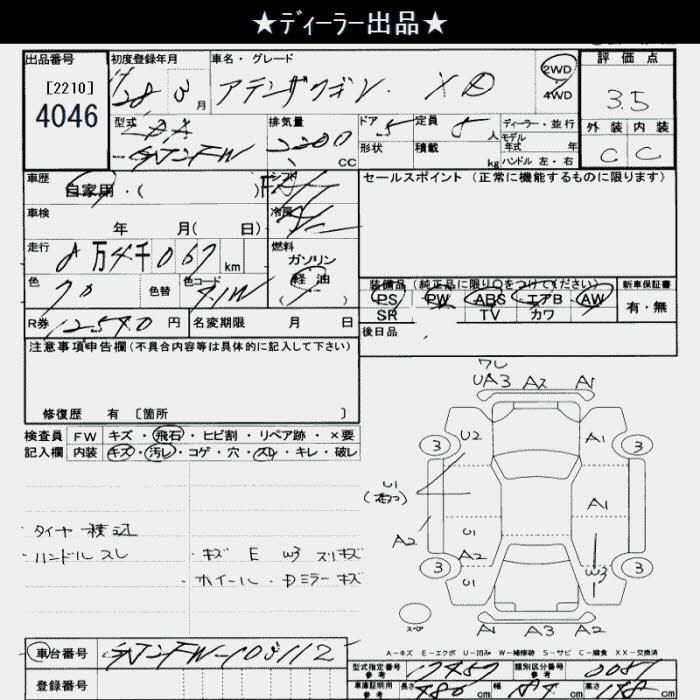 ★ディーラー出品★
出品番号 初度登録年月 車名・グレード 2WD 4WD 評価点
[2210]
4046
28 3月 アテンザワゴン XD 3.5
型式 排気量 ドア 定員 ディーラー・並行 外装 内装
2200 CC 5 人 モデル年式 年
形状 積載 kg ハンドル 左・右 C C
車歴 自家用・( ) シフト セールスポイント (正常に機能するものに限ります)
車検 年 月( 日) 冷房
走行 8万4千067km 燃料 ガソリン 軽油 ( )
色 色替 色コード 41W 装備品(純正品に限り○をつけてください) 新車保証書
PS PW ABS エアB AW 有・無
SR TV カワ
R券 12540円 名変期限 月 日 後日品
注意事項申告欄(不具合内容等は具体的に記入して下さい)
修復歴 有 [箇所 ]
検査員 FW キズ・飛石・ヒビ割・リペア跡・×要
記入欄 内装 キズ・汚レ・コゲ・穴・スレ・キレ・破レ
ワレ
UA3 A2 A1
U2 A1
3 3
U1
A1
A2 U1
A2
3 U1 W3 3
1
タイヤ 積込
ハンドル スレ ・キズ E W3 スリキズ
・ホイール・Dミラー キズ
スペア A1 A3 A2
A-キズ E-エクボ U-凹み W-補修跡 S-サビ C-腐食 XX-交換済
車台番号 GJ2FW-103112
登録番号
型式指定番号 参考 17457 類別区分番号 参考 0081
車庫証明用 参考 長さ 480cm 幅 184cm 高さ 148cm